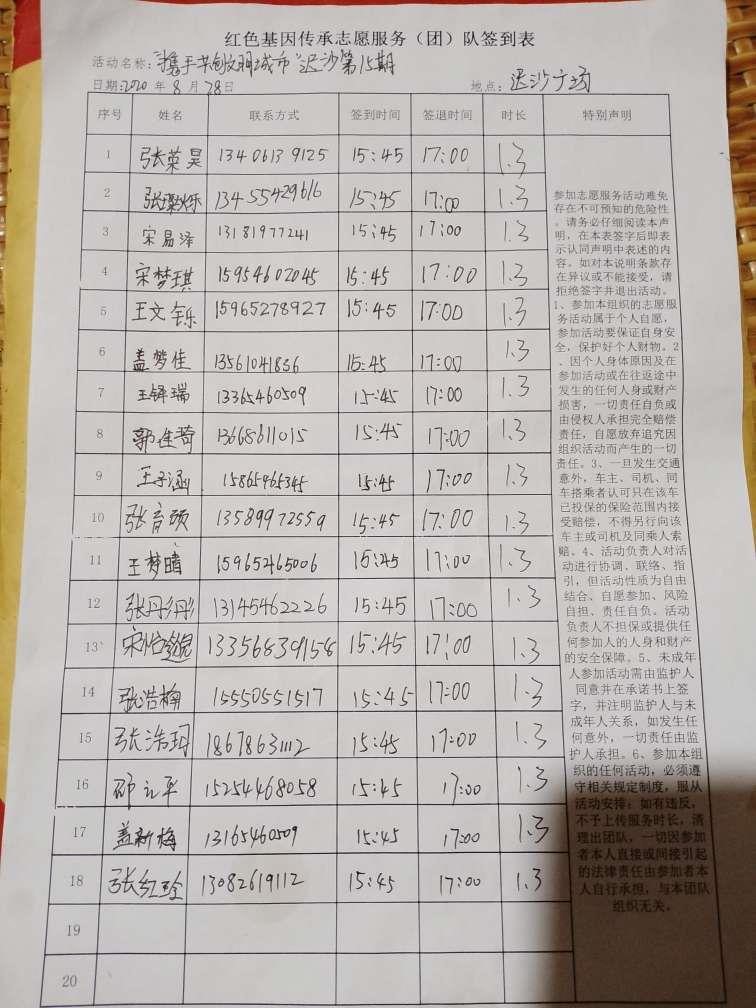 红色基因传承志愿服务（团）队签到表
活动名称："携手共创文明城市"迟沙第15期
日期:2020年8月28日 地点：迟沙广场
序号 姓名 联系方式 签到时间 签退时间 时长 特别声明
1 张荣昊 13406139125 15:45 17:00 1.3
2 张璨烁 13455429616 15:45 17:00 1.3
3 宋易泽 13181977241 15:45 17:00 1.3
4 宋梦琪 15954602045 15:45 17:00 1.3
5 王文铄 15965278927 15:45 17:00 1.3
6 盖梦佳 13561041836 15:45 17:00 1.3
7 王铎瑞 13365460509 15:45 17:00 1.3
8 郭佳琦 13668611015 15:45 17:00 1.3
9 王子涵 15865465345 15:45 17:00 1.3
10 张育硕 13589972559 15:45 17:00 1.3
11 王梦晴 15965265006 15:45 17:00 1.3
12 张丹彤 13145462226 15:45 17:00 1.3
13 宋怡 133568309158 15:45 17:00 1.3
14 张浩楠 15550551517 15:45 17:00 1.3
15 张浩珂 18678631112 15:45 17:00 1.3
16 15254468058 15:45 17:00 1.3
17 盖新梅 13165460509 15:45 17:00 1.3
18 张红玲 13082619112 15:45 17:00 1.3
19
20
参加志愿服务活动难免
存在不可预知的危险性
。请务必仔细阅读本声
明，在本表签字后即表
示认同声明中表述的内
容。如对本说明条款存
在异议或不能接受，请
拒绝签字并退出活动。
1、参加本组织的志愿服
务活动属于个人自愿，
参加活动要保证自身安
全，保护好个人财物。2
、因个人身体原因及在
参加活动或在往返途中
发生的任何人身或财产
损害，一切责任自负或
由侵权人承担完全赔偿
责任，自愿放弃追究因
组织活动而产生的一切
责任。3、一旦发生交通
意外，车主、司机、同
车搭乘者认可只在该车
已投保的保险范围内接
受赔偿，不得另行向该
车主或司机及同乘人索
赔。4、活动负责人对活
动进行协调、联络、指
引，但活动性质为自由
结合、自愿参加、风险
自担、责任自负。活动
负责人不担保或提供任
何参加人的人身和财产
的安全保障。5、未成年
人参加活动需由监护人
同意并在承诺书上签
字，并注明监护人与未
成年人关系，如发生任
何意外，一切责任由监
护人承担。6、参加本组
织的任何活动，必须遵
守相关规定制度，服从
活动安排；如有违反，
不予上传服务时长，清
理出团队，一切因参加
者本人直接或间接引起
的法律责任由参加者本
人自行承担，与本团队
组织无关。